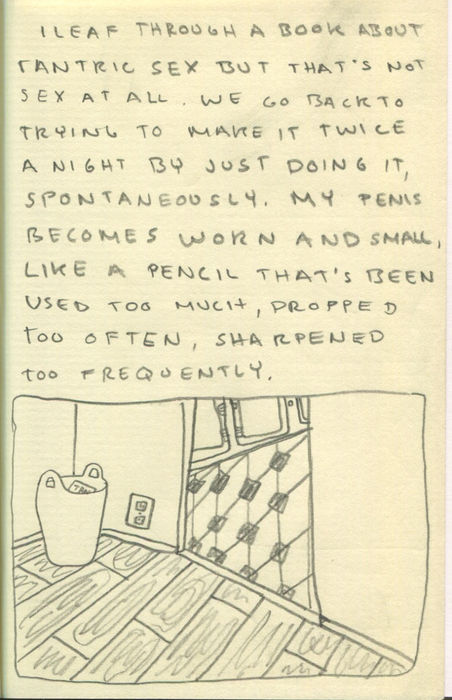 I LEAF THROUGH A BOOK ABOUT
TANTRIC SEX BUT THAT'S NOT
SEX AT ALL. WE GO BACK TO
TRYING TO MAKE IT TWICE
A NIGHT BY JUST DOING IT,
SPONTANEOUSLY. MY PENIS
BECOMES WORN AND SMALL,
LIKE A PENCIL THAT'S BEEN
USED TOO MUCH, DROPPED
TOO OFTEN, SHARPENED
TOO FREQUENTLY.